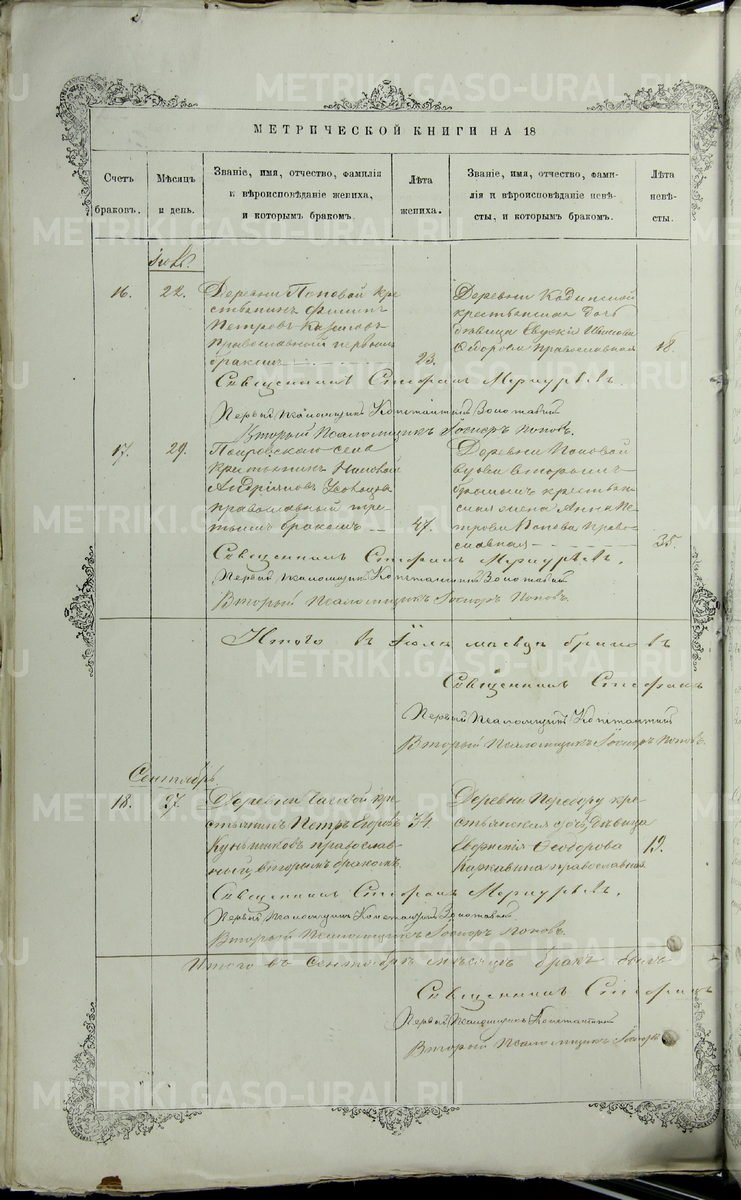 МЕТРИЧЕСКОЙ КНИГИ НА 18
Счетъ браковъ.
Мѣсяцъ и день.
Званіе, имя, отчество, фамилія
и вѣроисповѣданіе жениха,
и которымъ бракомъ.
Лѣта жениха.
Званіе, имя, отчество, фами-
лія и вѣроисповѣданіе невѣ-
сты, и которымъ бракомъ.
Лѣта невѣ-
сты.
16.
22.
Деревни Поповой кре
стьянинъ Филипъ
Петровъ
православной первымъ
бракомъ
23.
Деревни Кадинской
крестьянская дочь
дѣвица Евдокія Иванова
православная
18.
Священникъ Стефанъ Меркурьевъ.
Первый Псаломщикъ Константинъ Золотавинъ
Второй Псаломщикъ Іосифъ Поповъ.
17.
29.
Покровскаго села
крестьянинъ
Андріяновъ
православный тре
тьимъ бракомъ
47.
Деревни Поповой
вдова вторымъ
бракомъ крестьян-
ская жена Анна Пе
трова Попова право-
славная
35.
Священникъ Стефанъ Меркурьевъ.
Первый Псаломщикъ Константинъ Золотавинъ
Второй Псаломщикъ Іосифъ Поповъ.
Итого въ Іюлѣ мѣсяцѣ браковъ
Священникъ Стефанъ
Первый Псаломщикъ Константинъ
Второй Псаломщикъ Іосифъ Поповъ.
Сентябрь
18.
27.
Деревни кре-
стьянинъ Петръ Егоровъ
православ-
ный, вторымъ бракомъ.
34.
Деревни Переборъ кре-
стьянская дочь, дѣвица
Евгенія Ѳеодорова
православная
19.
Священникъ Стефанъ Меркурьевъ.
Первый Псаломщикъ Константинъ Золотавинъ
Второй Псаломщикъ Іосифъ Поповъ.
Итого въ Сентябрѣ мѣсяцѣ бракъ былъ
Священникъ Стефанъ
Первый Псаломщикъ Константинъ
Второй Псаломщикъ Іосифъ
METRIKI.GASO-URAL.RU